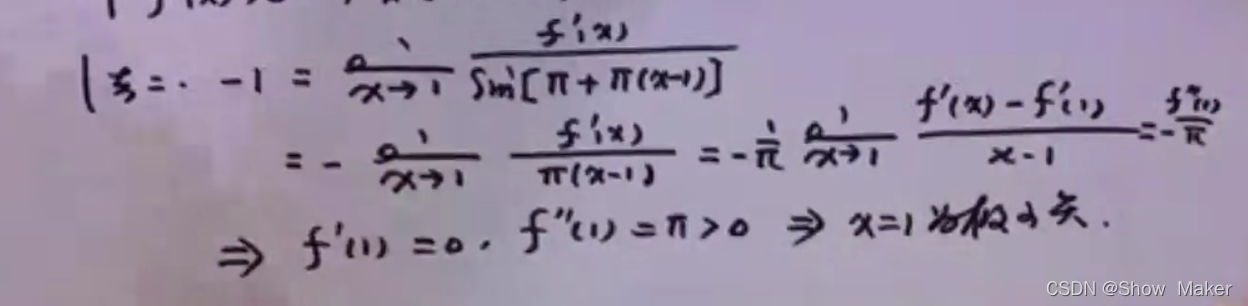 1° -1 = lim x→1 f'(x) / sin[π + π(x-1)]
= - lim x→1 f'(x) / π(x-1) = - 1/π lim x→1 (f'(x) - f'(1)) / (x-1) = - f''(1)/π
⇒ f'(1) = 0, f''(1) = π > 0 ⇒ x=1 为极小点.
CSDN @Show Maker